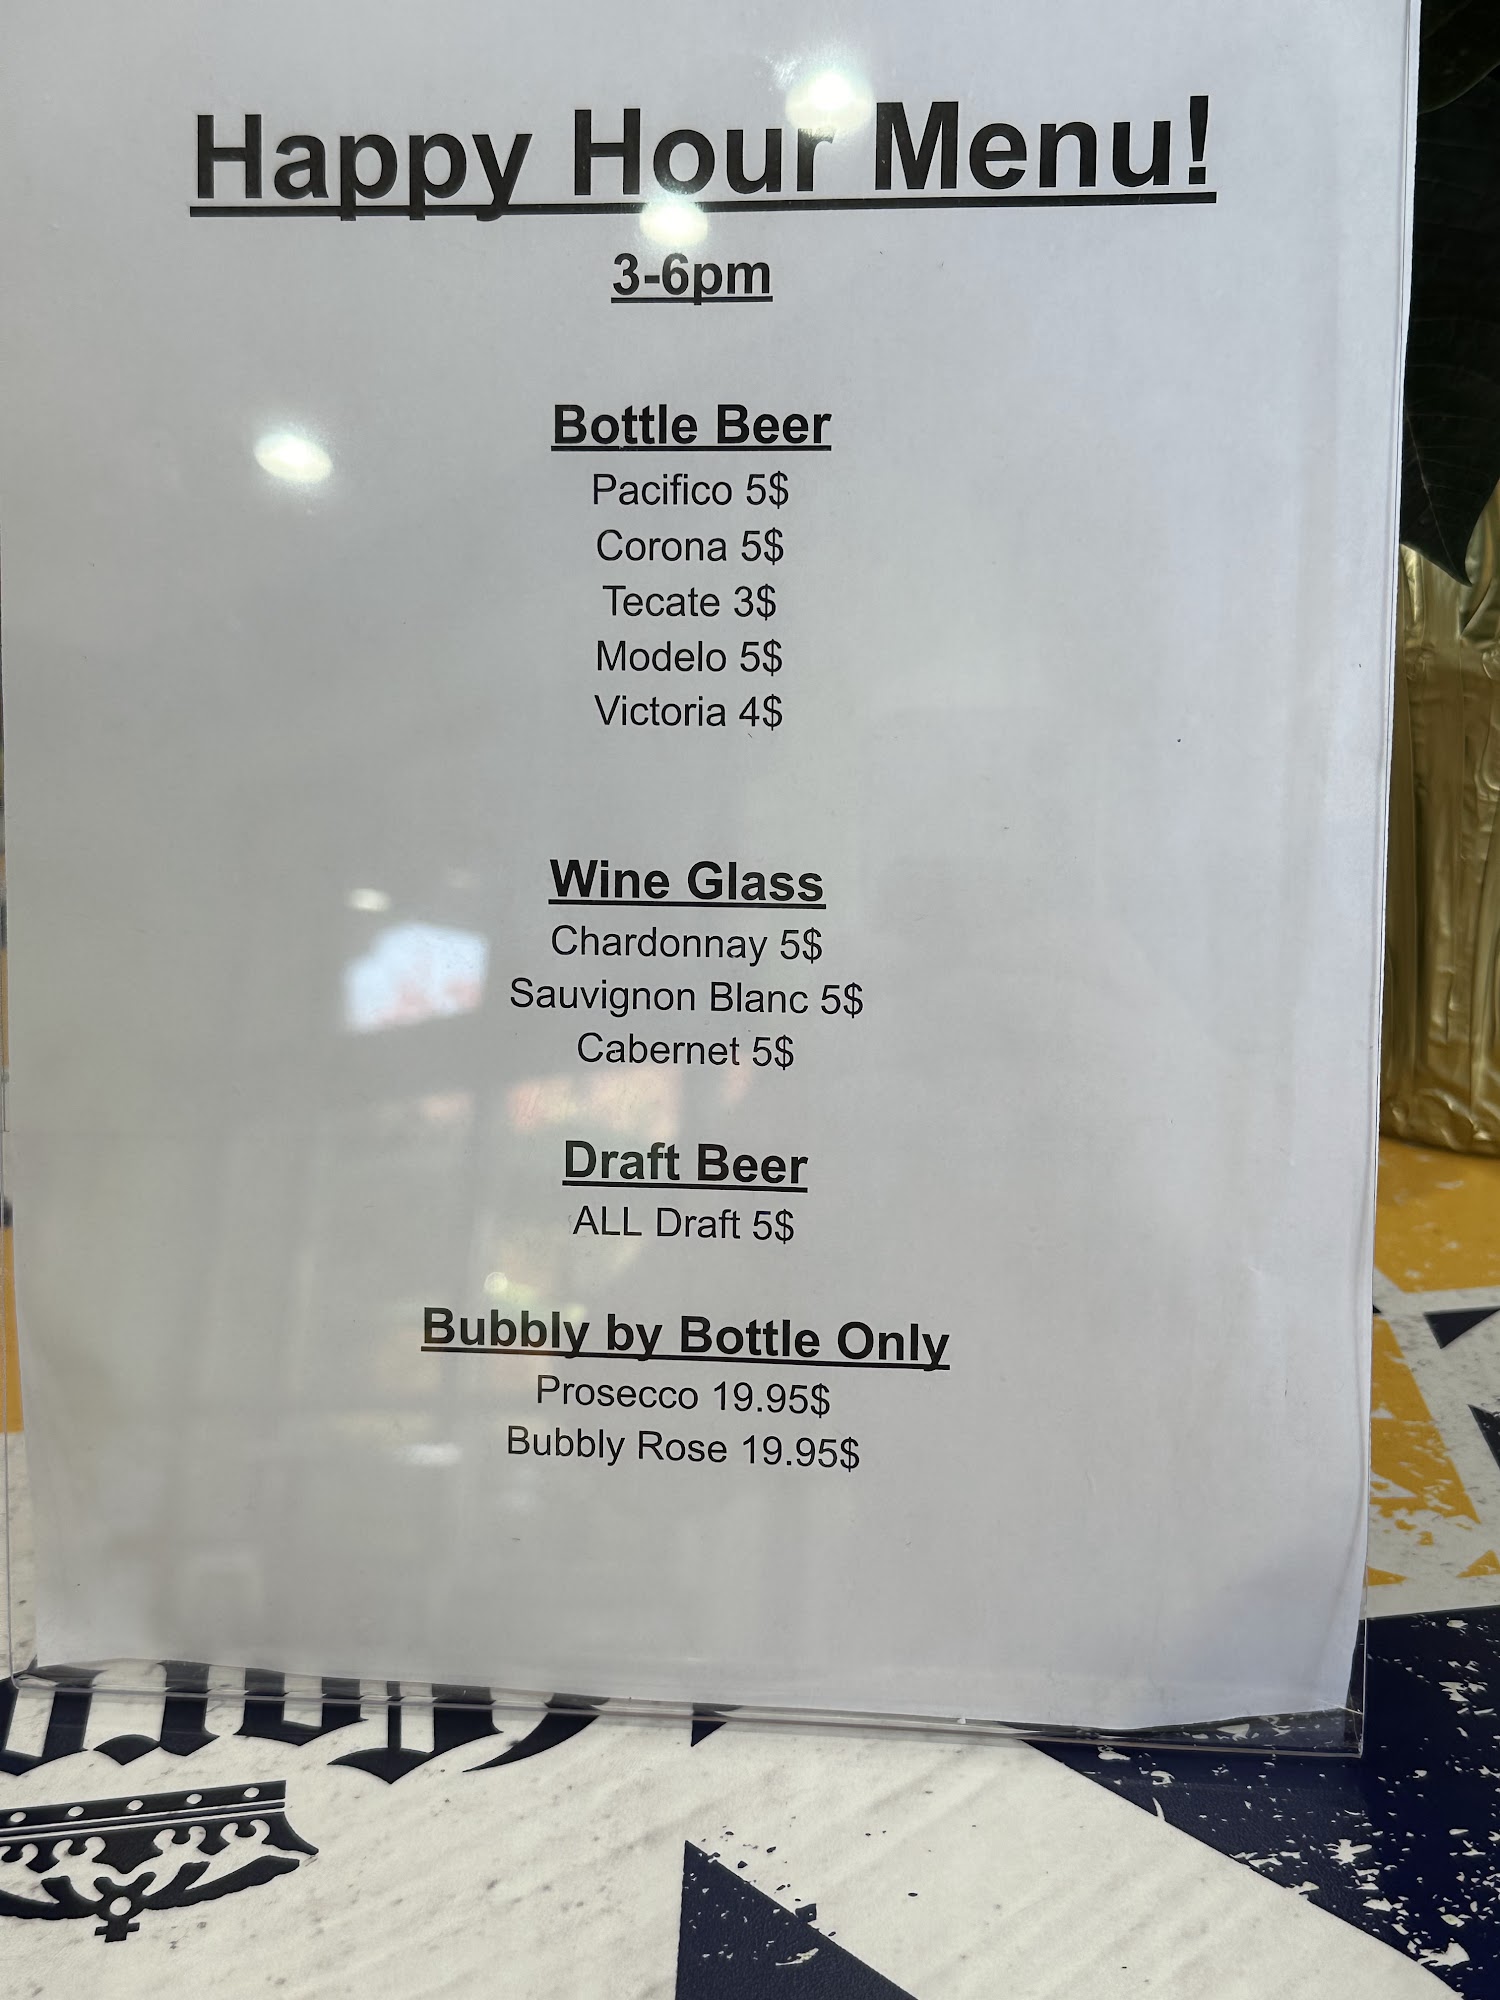 Happy Hour Menu!
3-6pm
Bottle Beer
Pacifico 5$
Corona 5$
Tecate 3$
Modelo 5$
Victoria 4$
Wine Glass
Chardonnay 5$
Sauvignon Blanc 5$
Cabernet 5$
Draft Beer
ALL Draft 5$
Bubbly by Bottle Only
Prosecco 19.95$
Bubbly Rose 19.95$